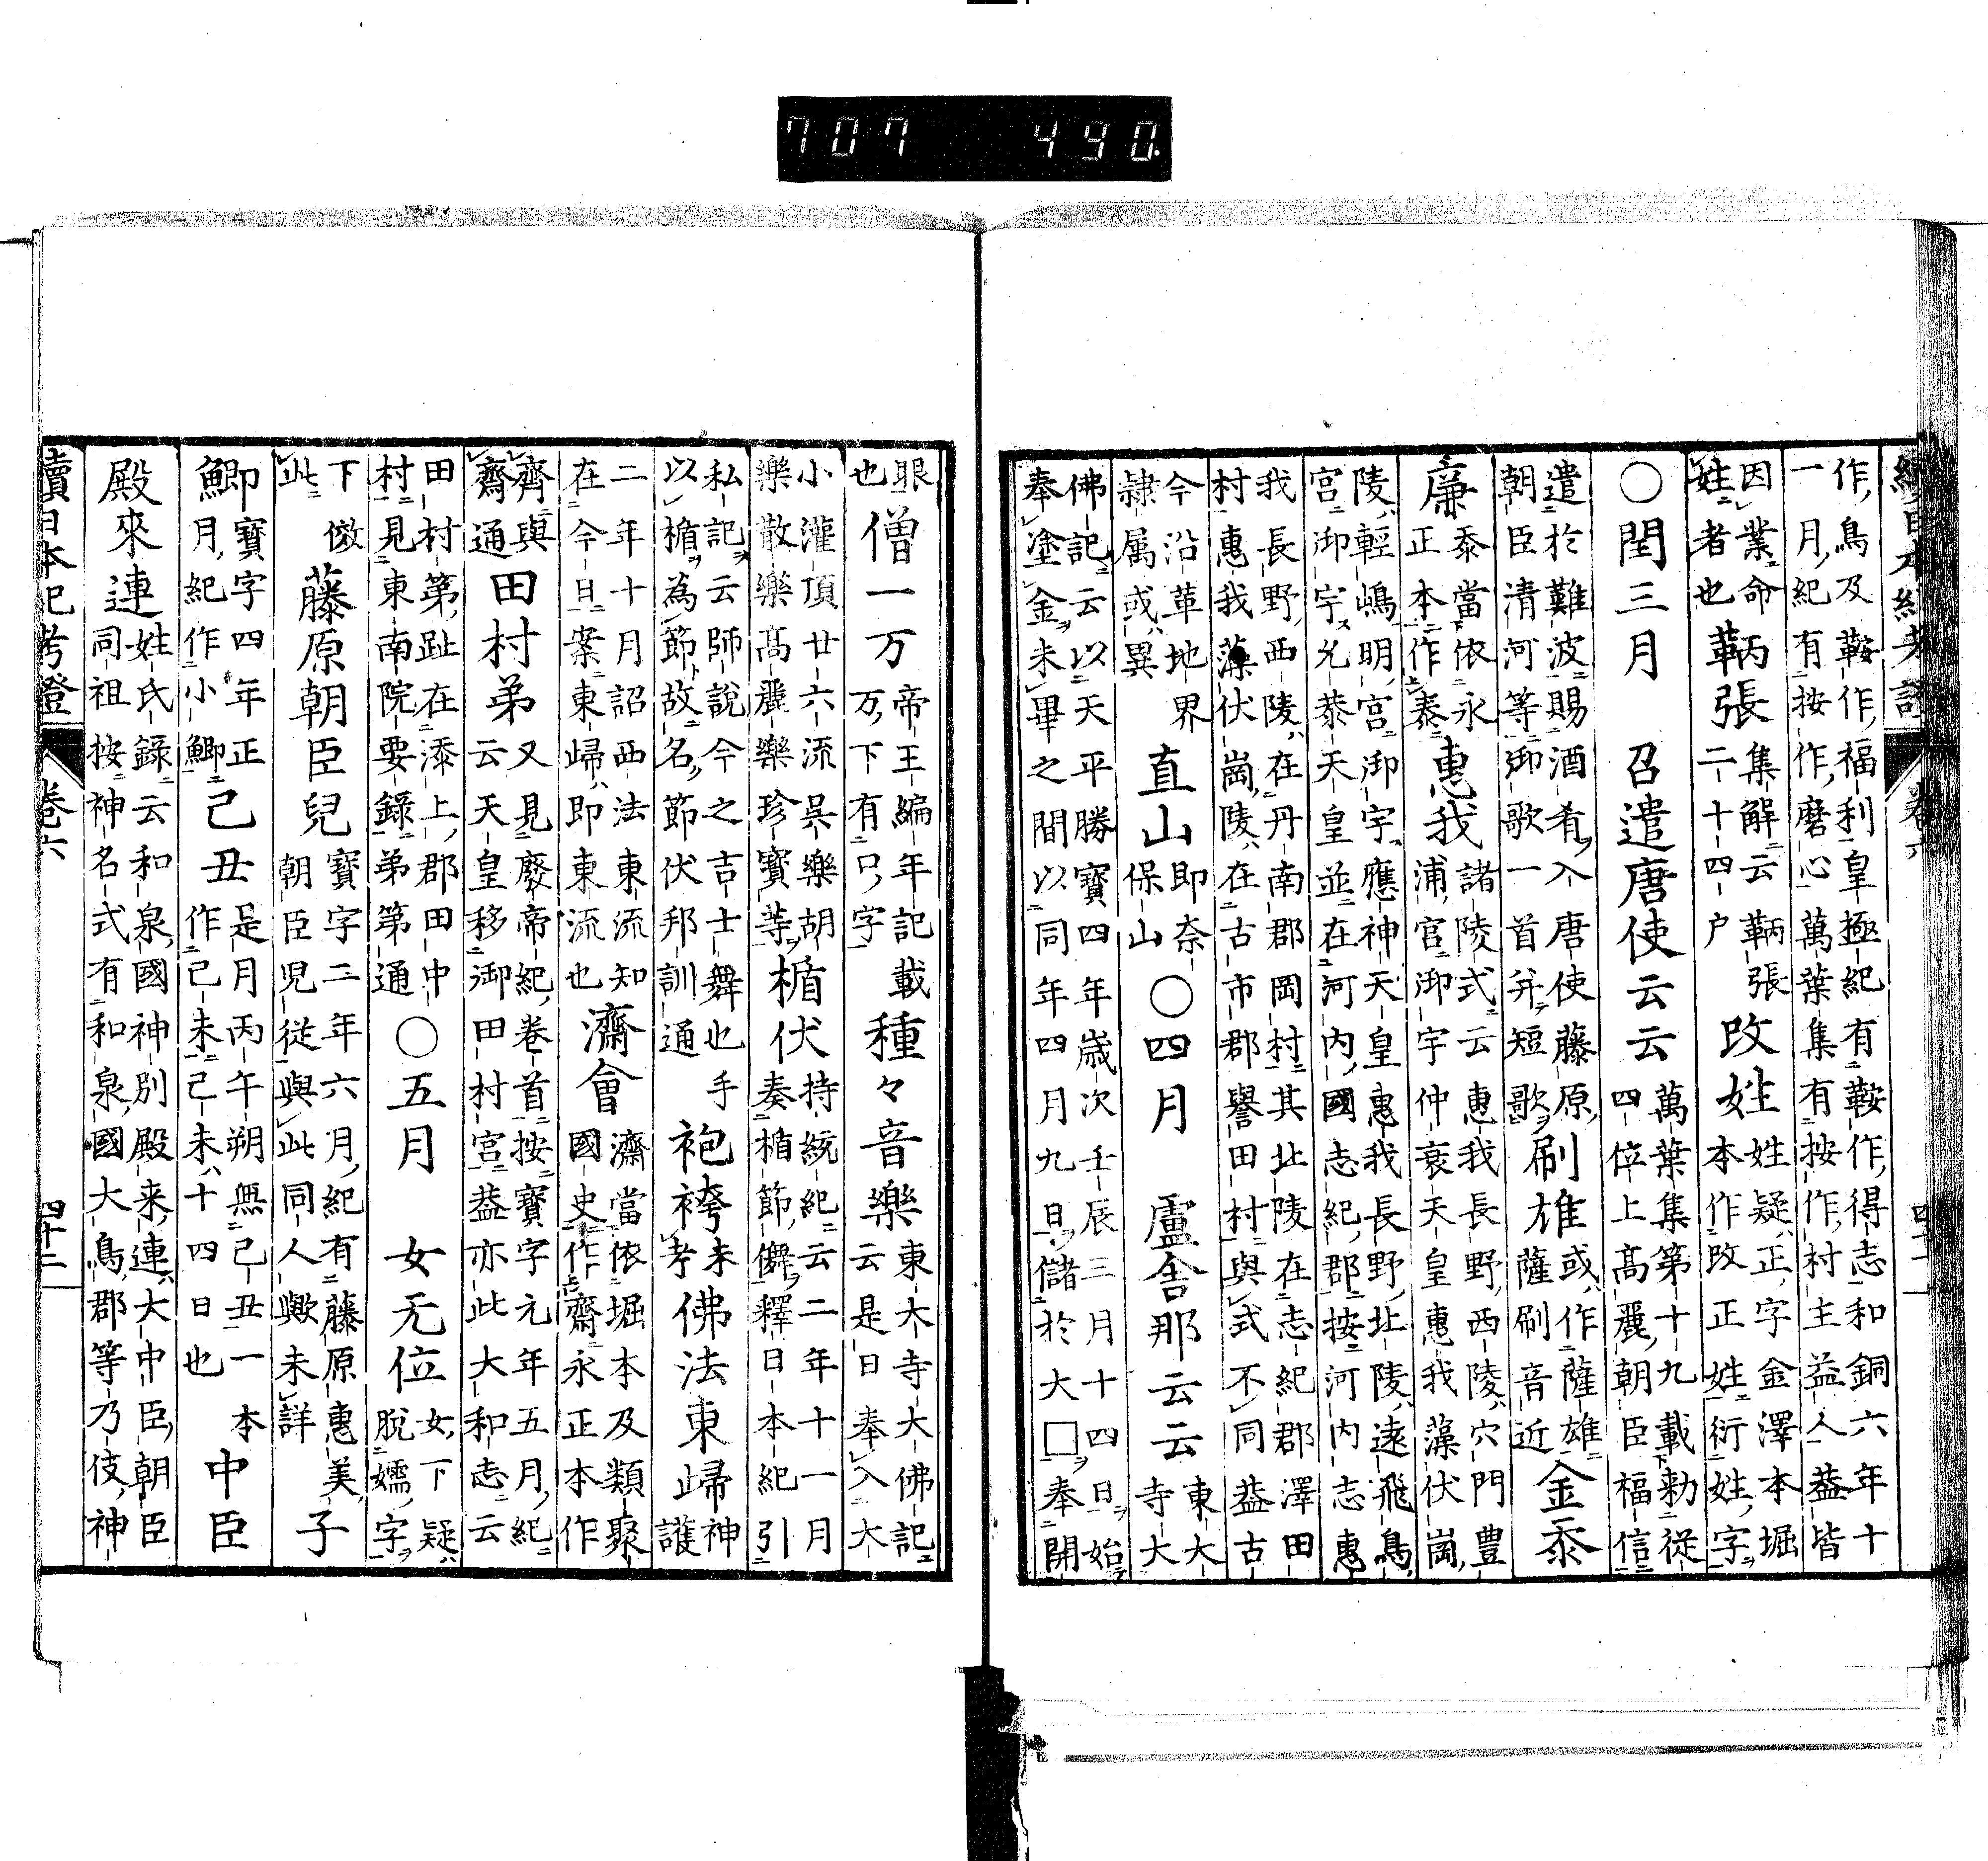 707 490.
續日本紀考證 卷六 四十二
作鳥及鞍作福利皇極紀有鞍作得志和銅六年十
一月紀有按作磨心萬葉集有按作村主益人益皆
因業命
姓者也
鞆張
集解云鞆張
二十四戸
改姓
姓疑正字金澤本堀
本作改正姓衍姓字
〇閏三月 召遣唐使云云
萬葉集第十九載勅從
四位上高麗朝臣福信
遣於難波賜酒肴入唐使藤原
朝臣清河等御歌一首并短歌
刷雄
或作薩雄
薩刷音近
金泰
廉
泰當依永
正本作泰
惠我
諸陵式云惠我長野西陵穴門豊
浦宮御宇仲哀天皇惠我藻伏崗
陵輕嶋明宮御宇應神天皇惠我長野北陵遠飛鳥
宮御宇允恭天皇並在河内國志紀郡按河内志惠
我長野西陵在丹南郡岡村其北陵在志紀郡澤田
村惠我藻伏崗陵在古市郡譽田村與式不同葢古
今沿革地界
隷属或異
直山
即奈
保山
〇四月 盧舍那云云
東大
寺大
佛記云以天平勝寶四年歲次壬辰三月十四日始
奉塗金未畢之間以同年四月九日儲於大□奉開
眼
也
僧一万
帝王編年記載
万下有口字
種々音樂
東大寺大佛記
云是日奉入大
小灌頂廿六流呉樂胡
樂散樂高麗樂珍寶等
楯伏
持統紀云二年十一月
奏楯節儛釋日本紀引
私記云師說今之吉士舞也手
以楯為節故名節伏邦訓通
袍袴
未
考
佛法東歸
神
護
二年十月詔西法東流知
在今日案東歸即東流也
濟會
濟當依堀本及類聚
國史作齋永正本作
齊與
齋通
田村第
又見廢帝紀卷首按寶字元年五月紀
云天皇移御田村宮葢亦此大和志云
田村第趾在添上郡田中
村見東南院要錄弟第通
〇五月 女无位
女下疑
脫孺字
下倣
此
藤原朝臣兒
寶字二年六月紀有藤原惠美
朝臣児從與此同人歟未詳
子
鯽
寶字四年正
月紀作小鯽
己丑
是月丙午朔無己丑一本
作己未己未十四日也
中臣
殿來連
姓氏錄云和泉國神別殿来連大中臣朝臣
同祖按神名式有和泉國大鳥郡等乃伎神
續日本紀考證 卷六 四十二